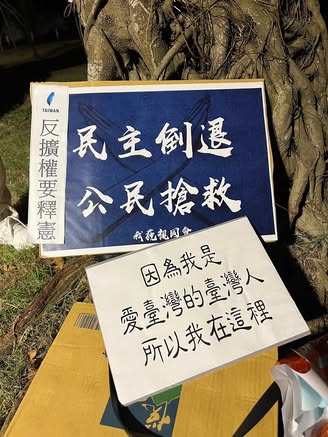 TAIWAN
反擴權要釋憲
民主倒退
公民搶救
我藐視國會
因為我是
愛臺灣的臺灣人
所以我在這裡